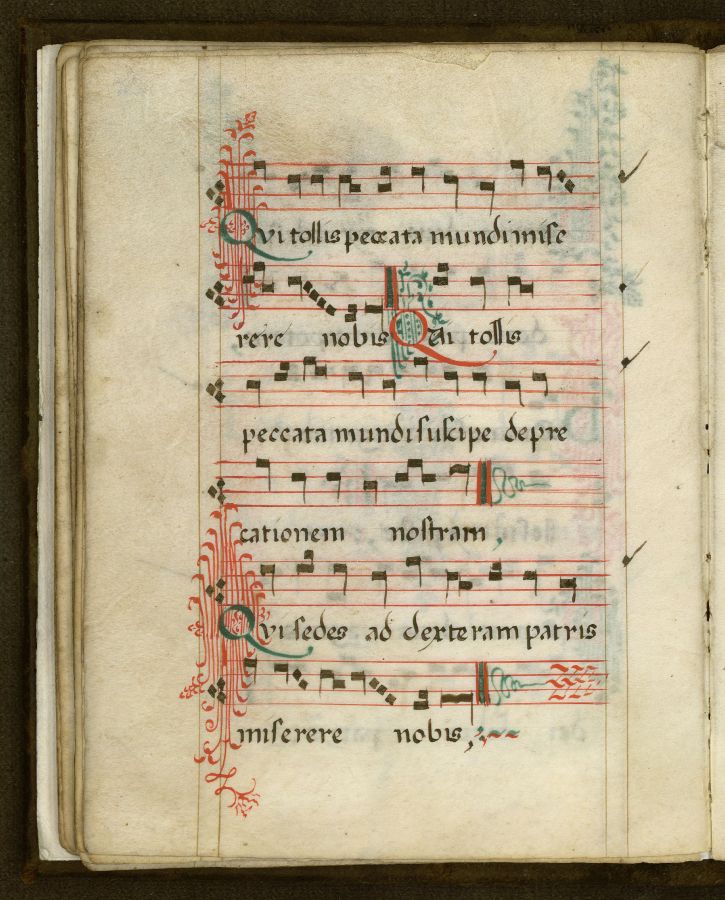 Qvi tollis peccata mundi mise
rere nobis Qui tollis
peccata mundi suscipe depre
cationem nostram,
Qvi sedes ad dexteram patris
miserere nobis,